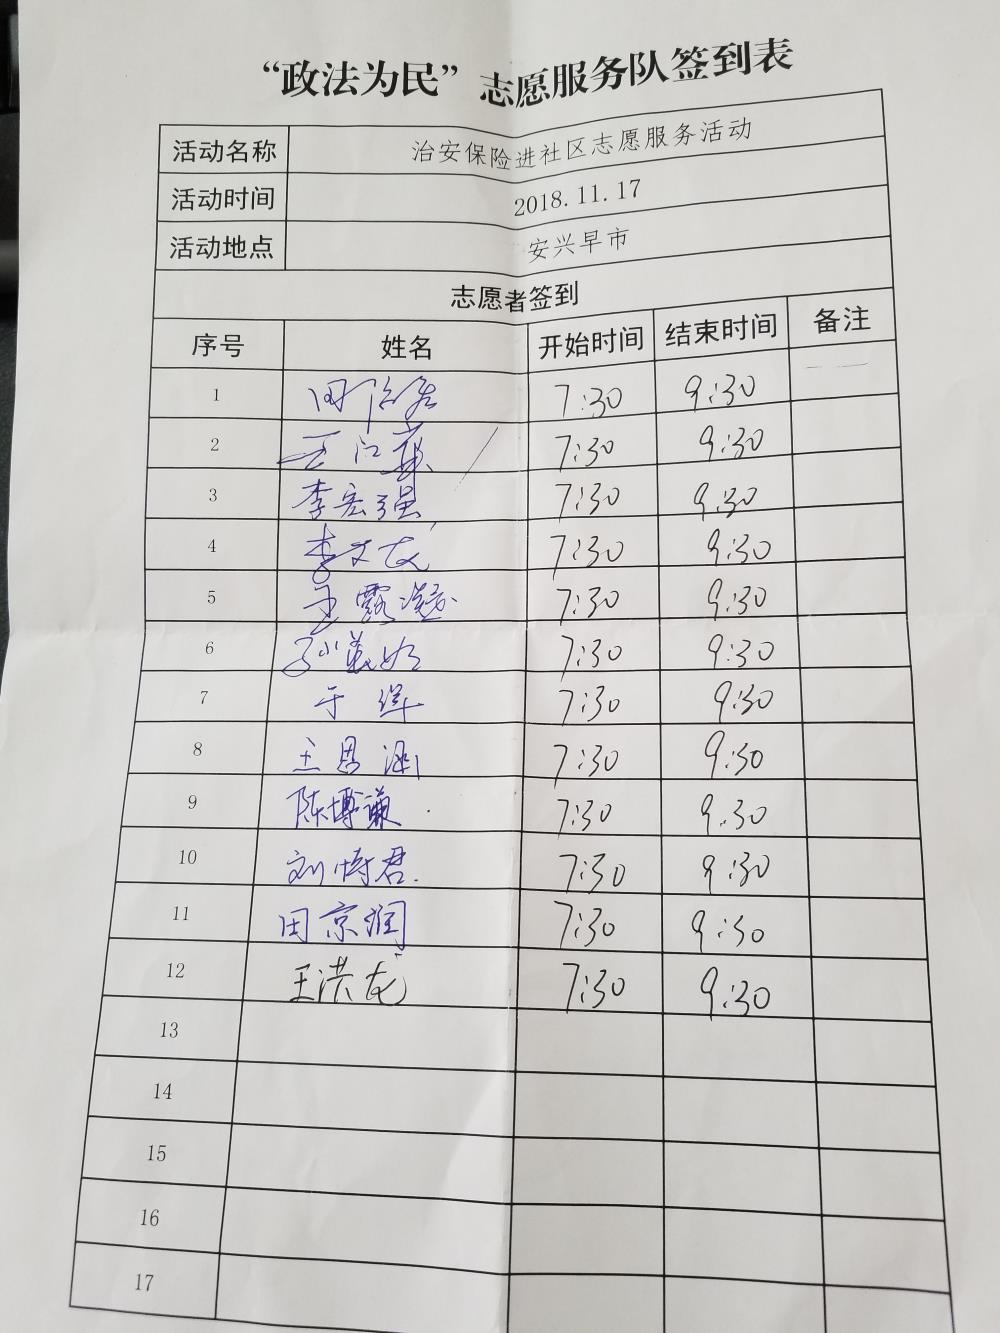 “政法为民”志愿服务队签到表
活动名称 治安保险进社区志愿服务活动
活动时间 2018.11.17
活动地点 安兴早市
志愿者签到
序号 姓名 开始时间 结束时间 备注
1 7:30 9:30
2 王江 7:30 9:30
3 李宏强 7:30 9:30
4 李文龙 7:30 9:30
5 王露凝 7:30 9:30
6 孙美 7:30 9:30
7 于 7:30 9:30
8 王思涵 7:30 9:30
9 陈博谦 7:30 9:30
10 刘博君 7:30 9:30
11 田京润 7:30 9:30
12 王洪龙 7:30 9:30
13
14
15
16
17